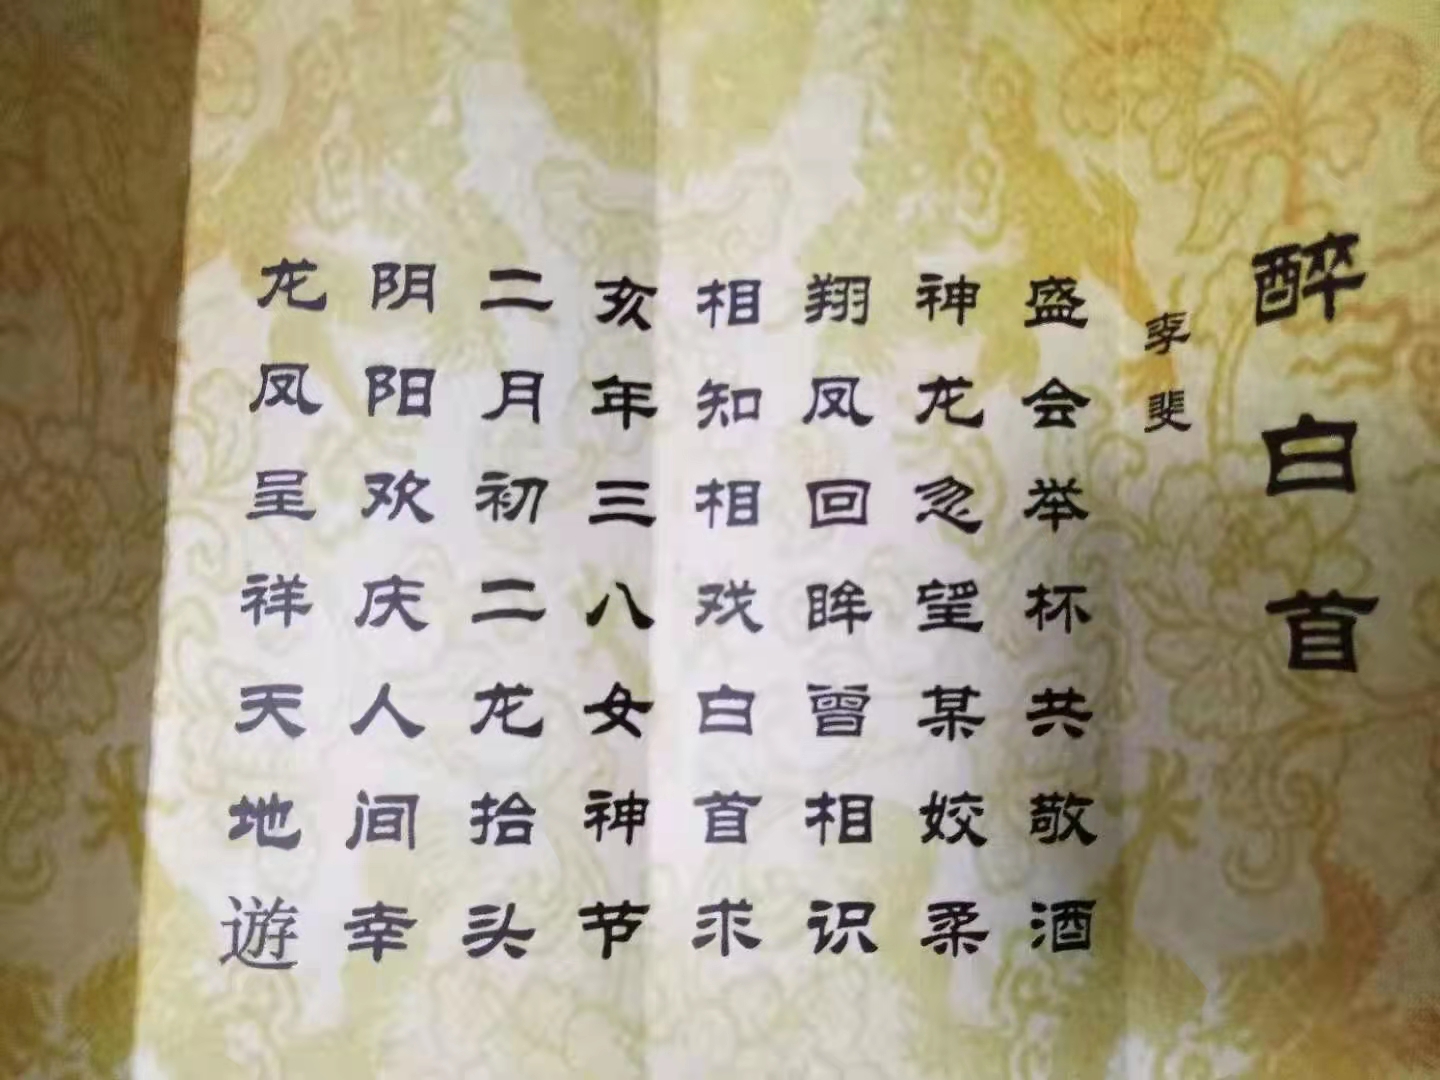 醉白首
李斐
盛会举杯共敬酒
神龙忽望某姣柔
翔凤回眸曾相识
相知相戏白首求
亥年三八女神节
二月初二龙抬头
阴阳欢庆人间幸
龙凤呈祥天地遊